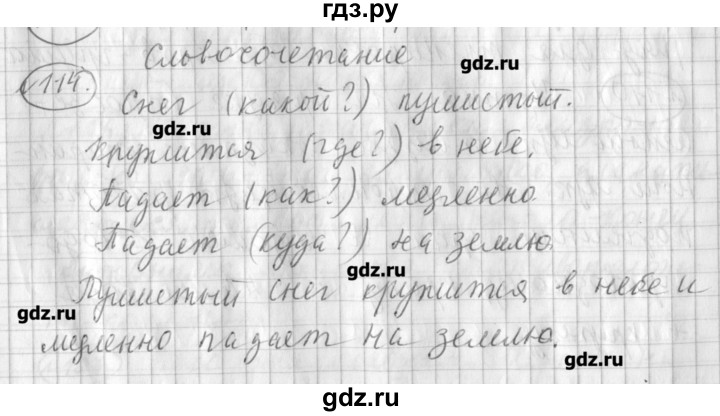 гдз.ру
Словосочетание
gdz.ru
114.
Снег (какой?) пушистый.
gdz.ru
Кружится (где?) в небе.
Падает (как?) медленно.
Падает (куда?) на землю.
gdz.ru
Пушистый снег кружится в небе и
gdz.ru
медленно падает на землю.
gdz.ru
gdz.ru